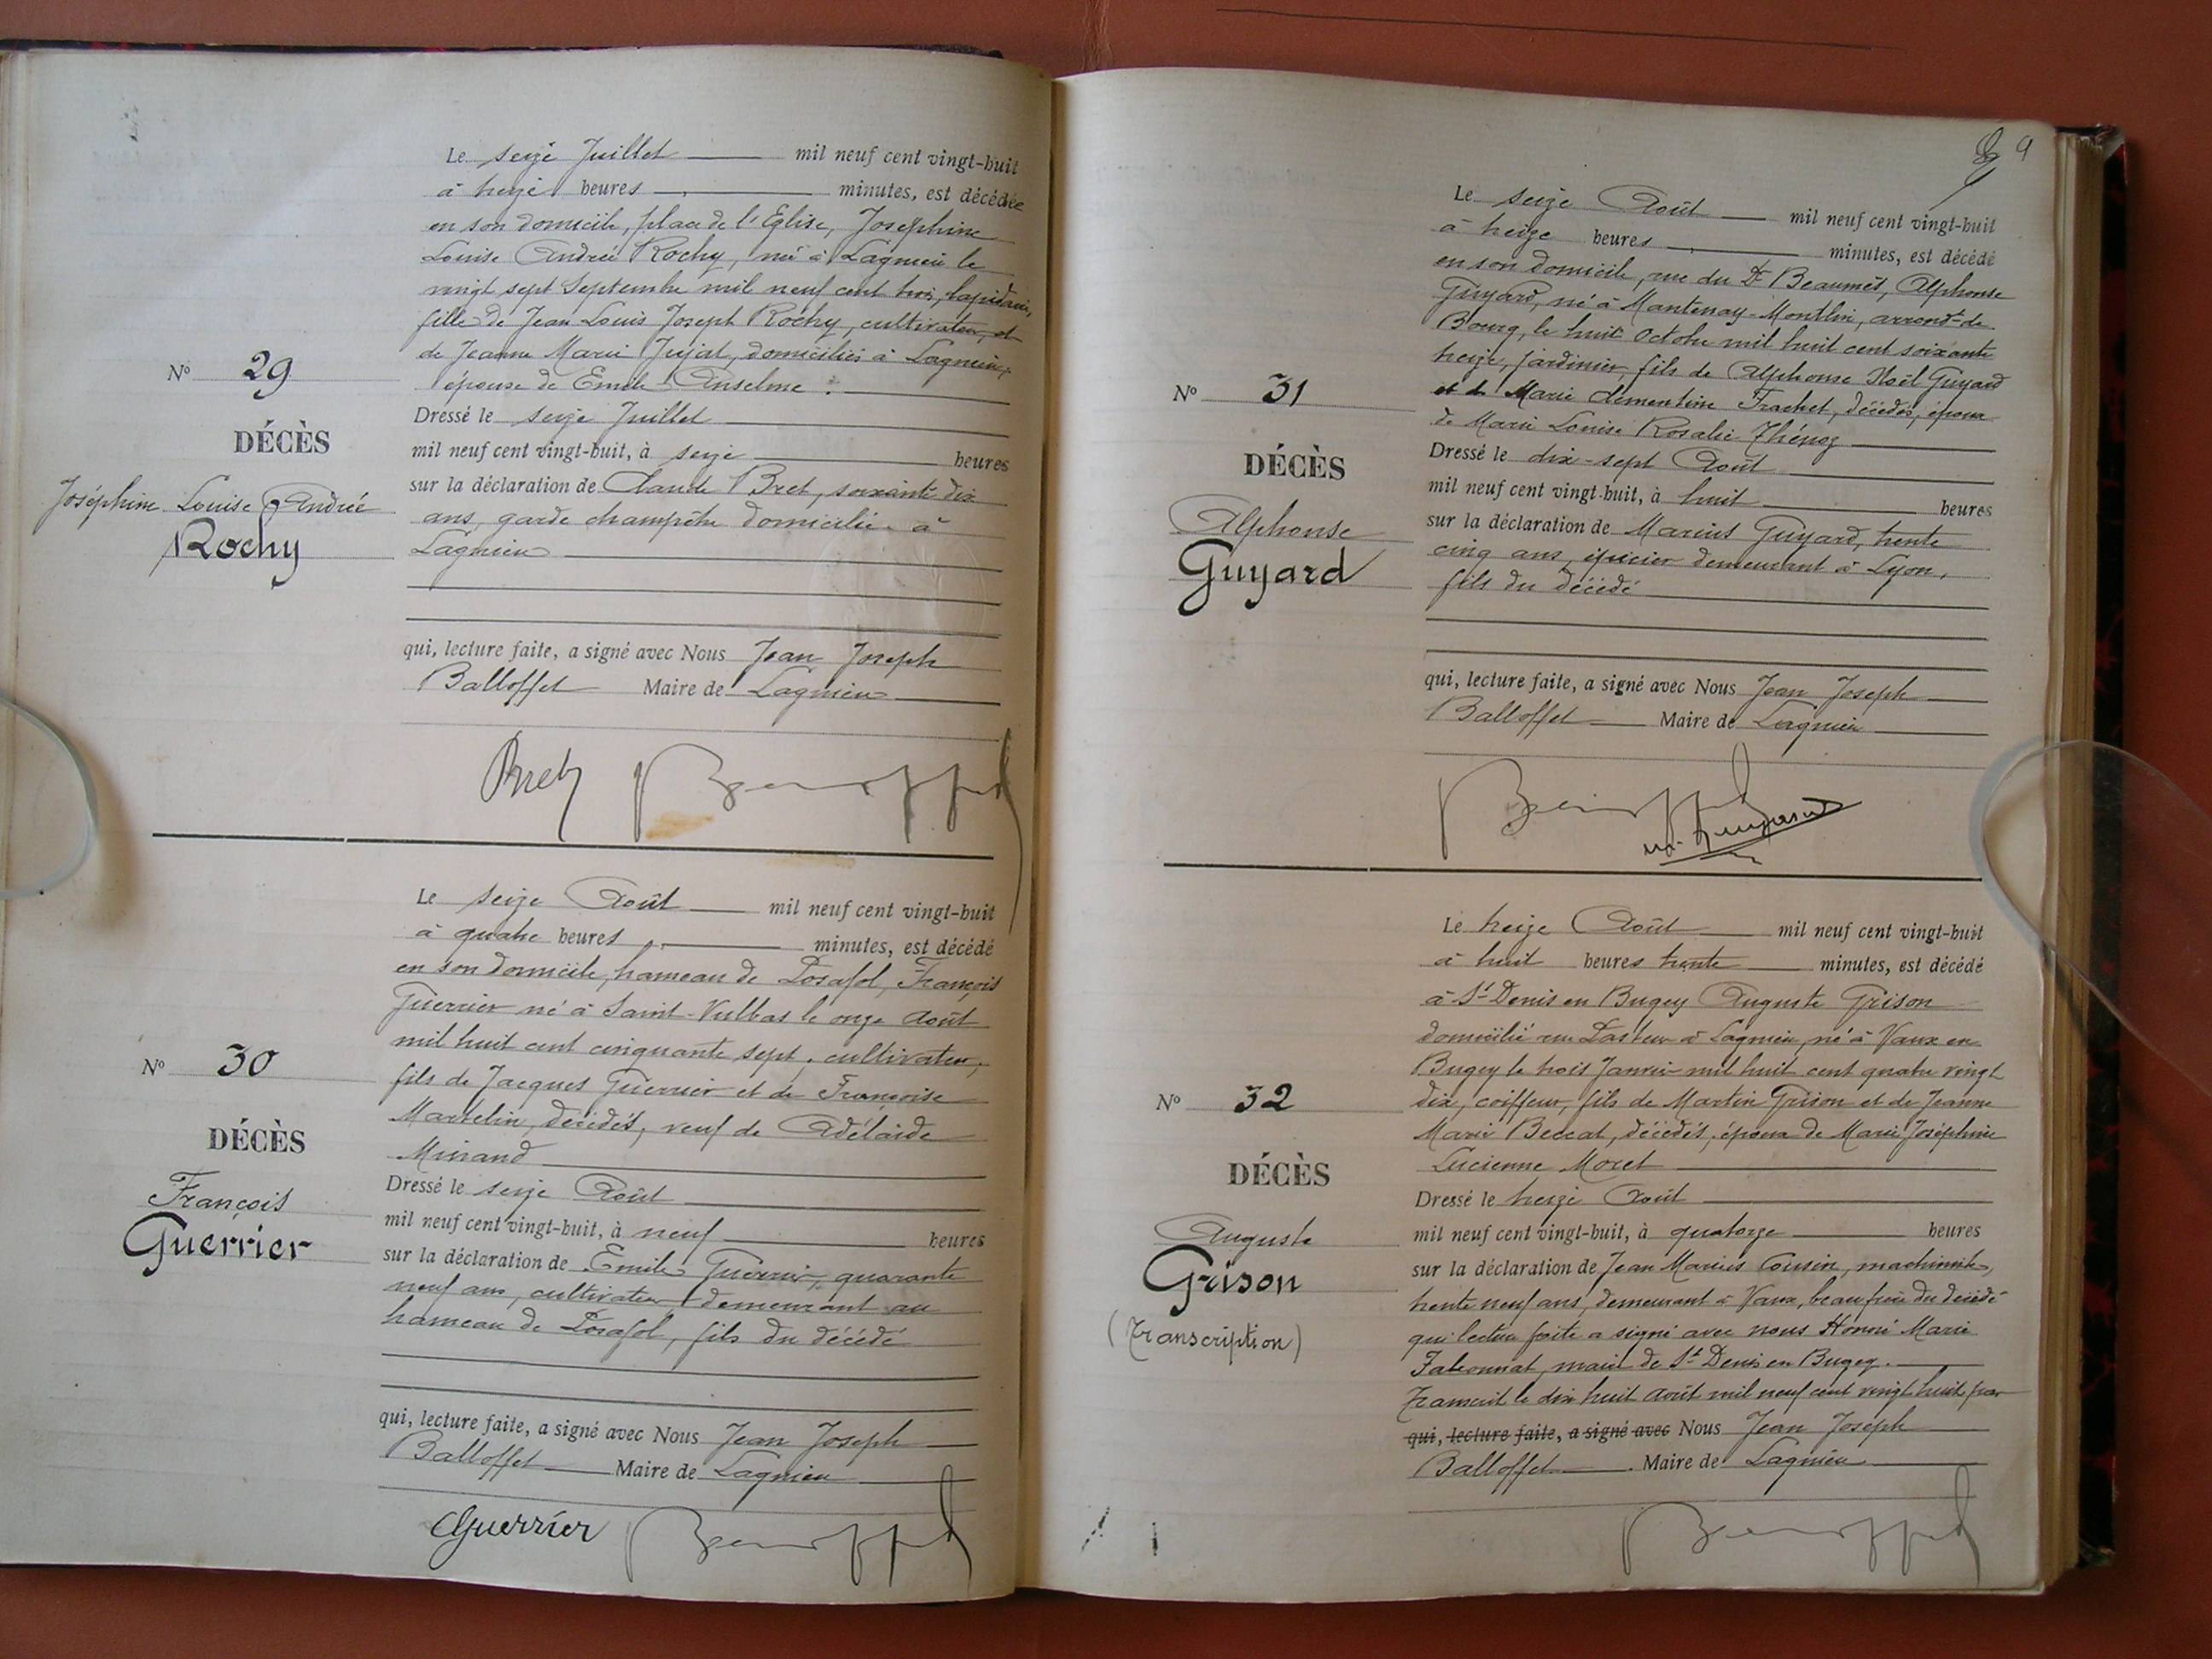 Le seize Juillet mil neuf cent vingt-huit
à treize heures minutes, est décédée
en son domicile, place de l'Eglise, Joséphine
Louise Andrée Rochy, née à Lagnieu le
vingt sept Septembre mil neuf cent trois, lapidaire,
fille de Jean Louis Joseph Rochy, cultivateur, et
de Jeanne Marie Jujat, domiciliés à Lagnieu,
épouse de Emile Anselme.
Nº 29
DÉCÈS
Joséphine Louise Andrée
Rochy
Dressé le seize Juillet
mil neuf cent vingt-huit, à seize heures
sur la déclaration de Claude Bret, soixante dix
ans, garde champêtre domicilié à
Lagnieu
qui, lecture faite, a signé avec Nous Jean Joseph
Balloffet Maire de Lagnieu
Bret
Le seize Août mil neuf cent vingt-huit
à quatre heures minutes, est décédé
en son domicile, hameau de Posafol, François
Guerrier né à Saint-Vulbas le onze Août
mil huit cent cinquante sept, cultivateur,
fils de Jacques Guerrier et de Françoise
Martelin, décédés, veuf de Adélaïde
Minand
Nº 30
DÉCÈS
François
Guerrier
Dressé le seize Août
mil neuf cent vingt-huit, à neuf heures
sur la déclaration de Emile Guerrier, quarante
neuf ans, cultivateur demeurant au
hameau de Posafol, fils du décédé
qui, lecture faite, a signé avec Nous Jean Joseph
Balloffet Maire de Lagnieu
Guerrier
9
Le seize Août mil neuf cent vingt-huit
à treize heures minutes, est décédé
en son domicile, rue du Dr Beaumet, Alphonse
Guyard, né à Mantenay-Montlin, arrondt de
Bourg, le huit Octobre mil huit cent soixante
treize, jardinier, fils de Alphonse Noël Guyard
et de Marie Clémentine Frachet, décédés, époux
de Marie Louise Rosalie Thénoz
Nº 31
DÉCÈS
Alphonse
Guyard
Dressé le dix-sept Août
mil neuf cent vingt-huit, à huit heures
sur la déclaration de Marius Guyard, trente
cinq ans, épicier demeurant à Lyon,
fils du décédé
qui, lecture faite, a signé avec Nous Jean Joseph
Balloffet Maire de Lagnieu
Le treize Août mil neuf cent vingt-huit
à huit heures trente minutes, est décédé
à St Denis en Bugey Auguste Grison
domicilié rue Pasteur à Lagnieu, né à Vaux en
Bugey le trois Janvier mil huit cent quatre vingt
dix, coiffeur, fils de Martin Grison et de Jeanne
Marie Beccat, décédés, époux de Marie Joséphine
Lucienne Moret
Nº 32
DÉCÈS
Auguste
Grison
(Transcription)
Dressé le treize Août
mil neuf cent vingt-huit, à quatorze heures
sur la déclaration de Jean Marius Cousin, machiniste,
trente neuf ans, demeurant à Vaux, beau frère du décédé
qui lecture faite a signé avec nous Honoré Marie
Falconnat, maire de St Denis en Bugey.
Transcrit le dix huit Août mil neuf cent vingt huit par
qui, lecture faite, a signé avec Nous Jean Joseph
Balloffet Maire de Lagnieu